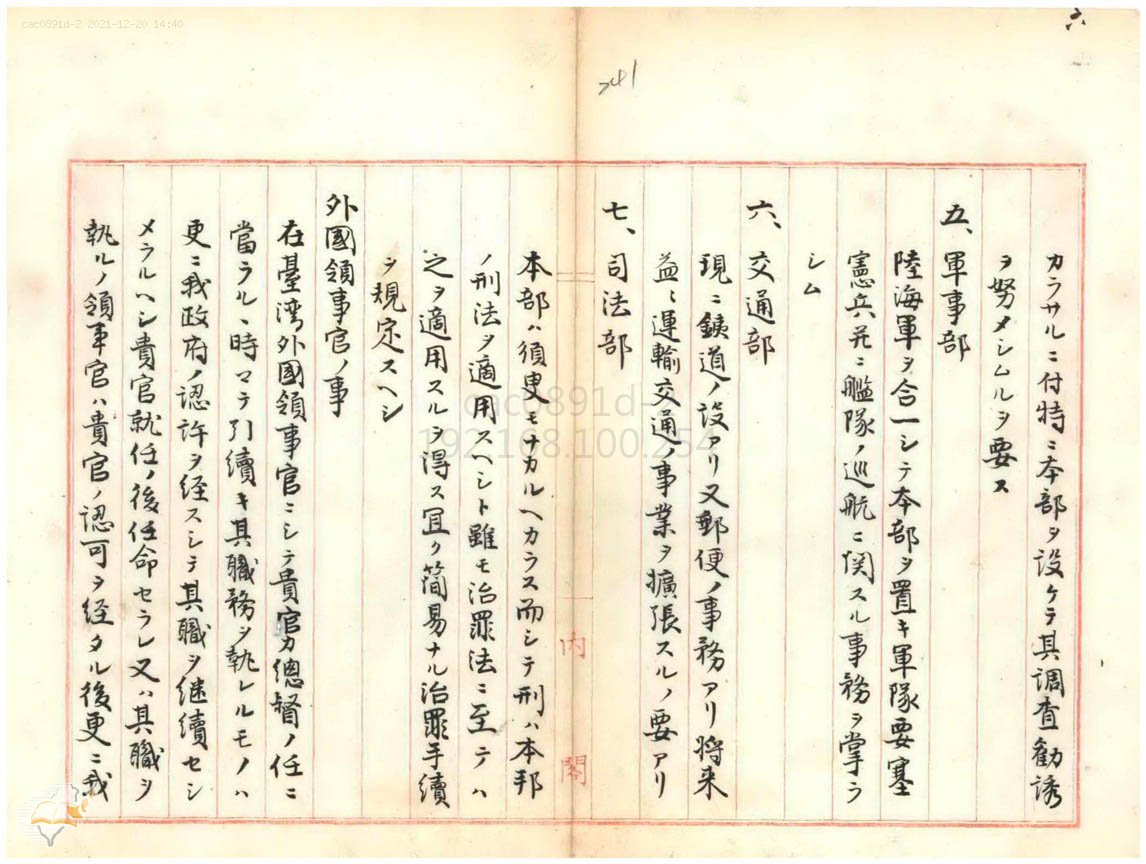 cac0891d-2 2021-12-20 14:40
六
241
カラサルニ付特ニ本部ヲ設ケテ其調査勧誘
ヲ努メシムルヲ要ス
五、軍事部
陸海軍ヲ合一シテ本部ヲ置キ軍隊要塞
憲兵并ニ艦隊ノ巡航ニ関スル事務ヲ掌ラ
シム
六、交通部
現ニ鉄道ノ設アリ又郵便ノ事務アリ将来
益々運輸交通ノ事業ヲ擴張スルノ要アリ
七、司法部
本部ハ須臾モナカルヘカラス而シテ刑ハ本邦
ノ刑法ヲ適用スヘシト雖モ治罪法ニ至テハ
之ヲ適用スルヲ得ス宜ク簡易ナル治罪手續
ヲ規定スヘシ
外國領事官ノ事
在臺湾外國領事官ニシテ貴官カ總督ノ任ニ
當ラルヽ時マテ引續キ其職務ヲ執レルモノハ
更ニ我政府ノ認許ヲ経スシテ其職ヲ継續セシ
メラルヘシ貴官就任ノ後任命セラレ又ハ其職ヲ
執ルノ領事官ハ貴官ノ認可ヲ経タル後更ニ我
内閣
cac0891d-2
192.168.100.254